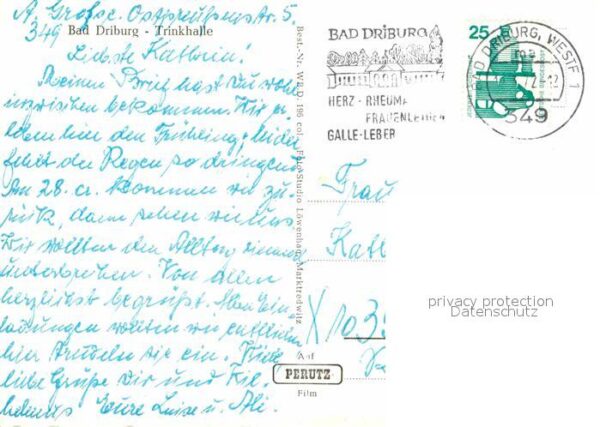 A. Große. Ostpreußenstr. 5.
349
Bad Driburg - Trinkhalle
Liebste Kathrin!
Meinen Brief hast du wohl
inzwischen bekommen. Wir er-
leben hier den Frühling, leider
fehlt der Regen so dringend
Am 28. cr. kommen wir zu-
rück, dann sehen wir uns.
Wir wollten den Alltag einmal
unterbrechen. Von allen
herzlichst begrüßt. Allen Ein-
ladungen wollten wir entfliehen
hier trudeln sie ein. Viele
liebe Grüße Dir und Wil-
helmus Eure Luise u. Ali.
Best.-Nr. W R D 195 col. Foto-Studio Löwenhag, Marktredwitz
BAD DRIBURG
HERZ - RHEUMA
FRAUENLEIDEN
GALLE-LEBER
25
BAD DRIBURG, WESTF 1
349
Frau
Kath
X 103
Auf
PERUTZ
Film
privacy protection
Datenschutz